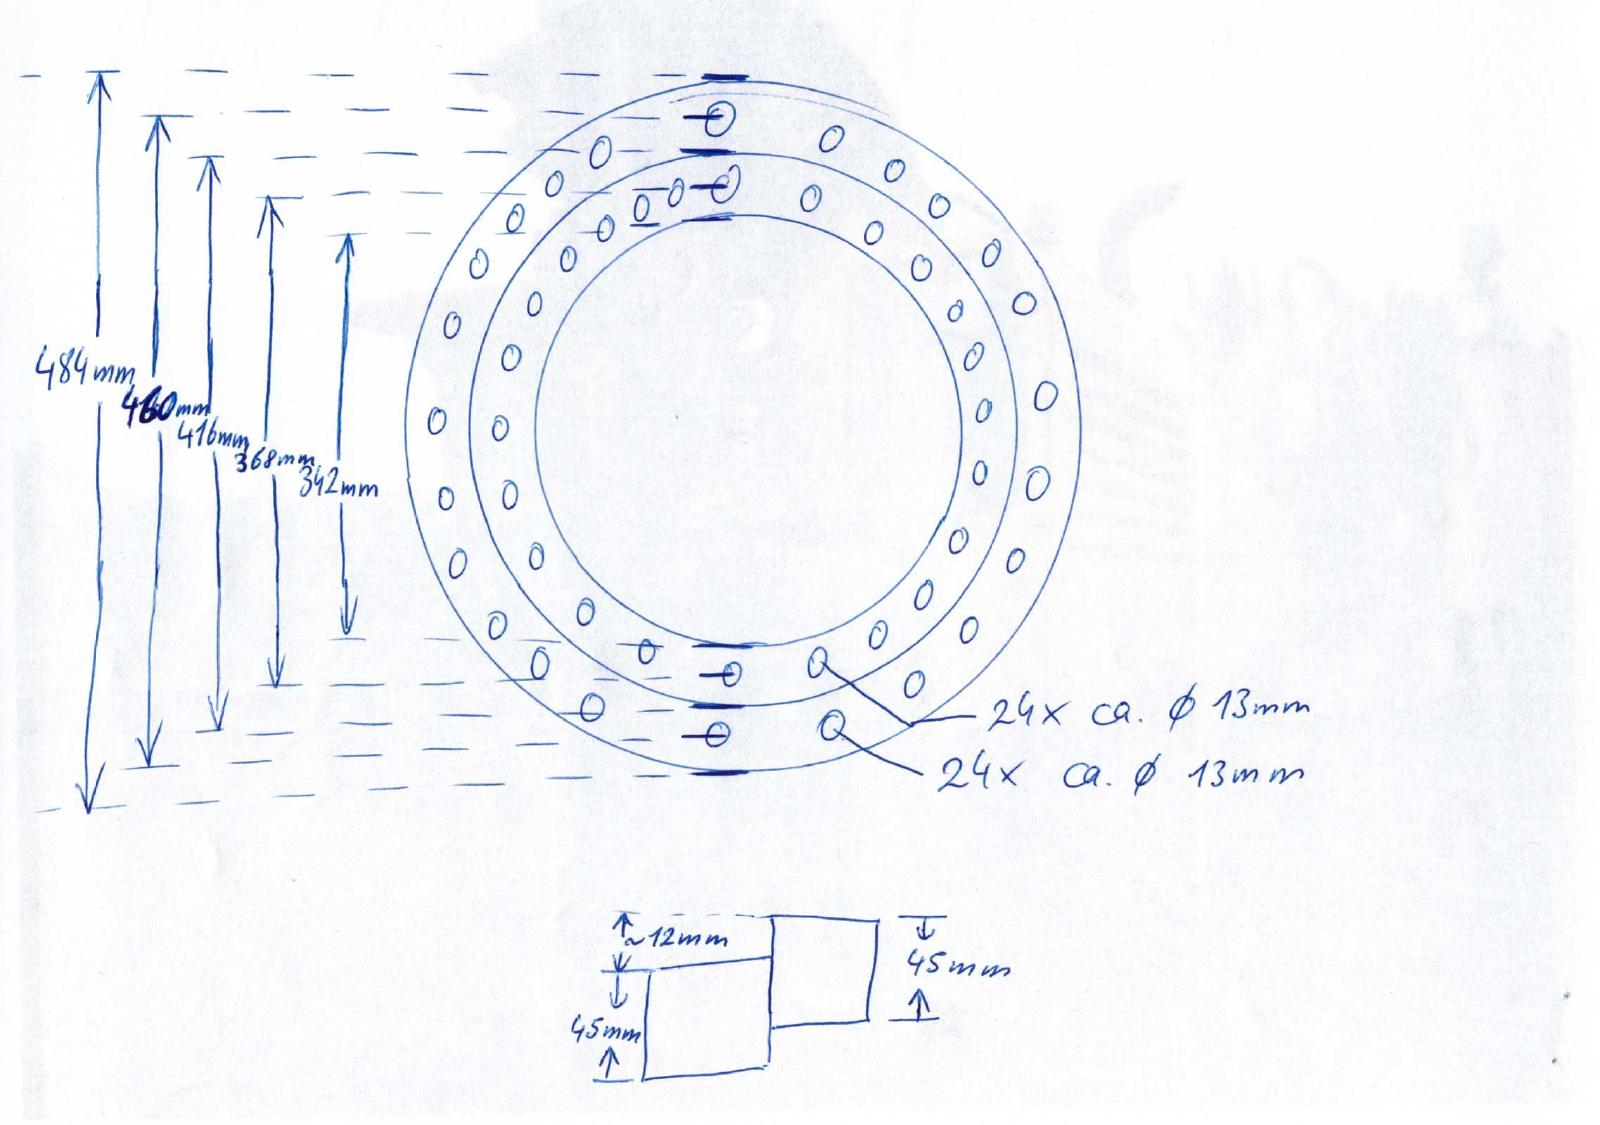 484mm
460mm
416mm
368mm
342mm
24x ca. ø 13mm
24x ca. ø 13mm
~12mm
45mm
45mm